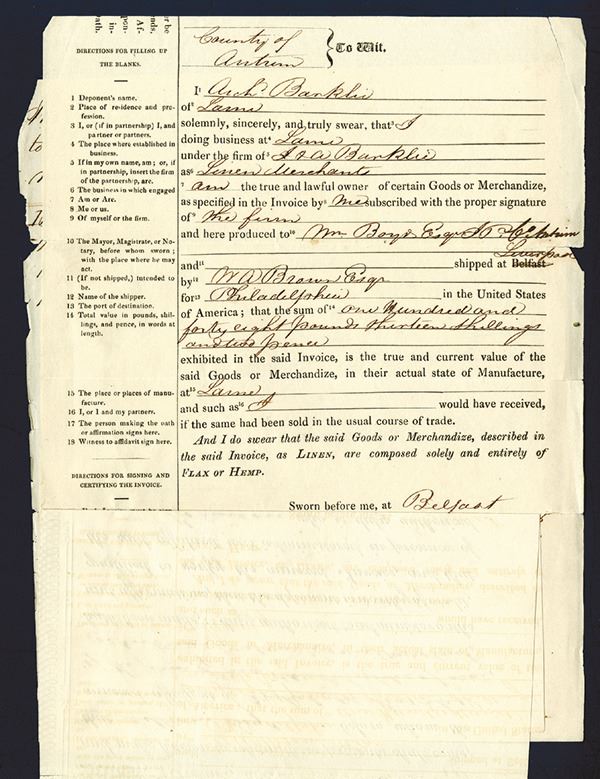 r be
onds,
Af-
pon-
in-
oath.
DIRECTIONS FOR FILLING UP
THE BLANKS.
1 Deponent's name.
2 Place of residence and pro-
fession.
3 I, or (if in partnership) I, and
partner or partners.
4 The place where established in
business.
5 If in my own name, am; or, if
in partnership, insert the firm
of the partnership, are.
6 The business in which engaged
7 Am or Are.
8 Me or us.
9 Of myself or the firm.
10 The Mayor, Magistrate, or No-
tary, before whom sworn;
with the place where he may
act.
11 (If not shipped,) intended to
be.
12 Name of the shipper.
13 The port of destination.
14 Total value in pounds, shil-
lings, and pence, in words at
length.
15 The place or places of manu-
facture.
16 I, or I and my partners.
17 The person making the oath
or affirmation signs here.
18 Witness to affidavit sign here.
DIRECTIONS FOR SIGNING AND
CERTIFYING THE INVOICE.
County of
Antrim
To Wit.
I¹ Archd Barklie
of² Larne
solemnly, sincerely, and truly swear, that³ I
doing business at⁴ Larne
under the firm of⁵ J & A Barklie
as⁶ Linen Merchants
⁷ am the true and lawful owner of certain Goods or Merchandize,
as specified in the Invoice by⁸ me subscribed with the proper signature
of⁹ the firm
and here produced to¹⁰ Wm Boyd Esqr
Liverpool
and¹¹ shipped at Belfast
by¹² W A Brown Esqr
for¹³ Philadelphia in the United States
of America; that the sum of¹⁴ one Hundred and
forty eight pounds thirteen shillings
and two pence
exhibited in the said Invoice, is the true and current value of the
said Goods or Merchandize, in their actual state of Manufacture,
at¹⁵ Larne
and such as¹⁶ I would have received,
if the same had been sold in the usual course of trade.
And I do swear that the said Goods or Merchandize, described in
the said Invoice, as LINEN, are composed solely and entirely of
FLAX or HEMP.
Sworn before me, at Belfast